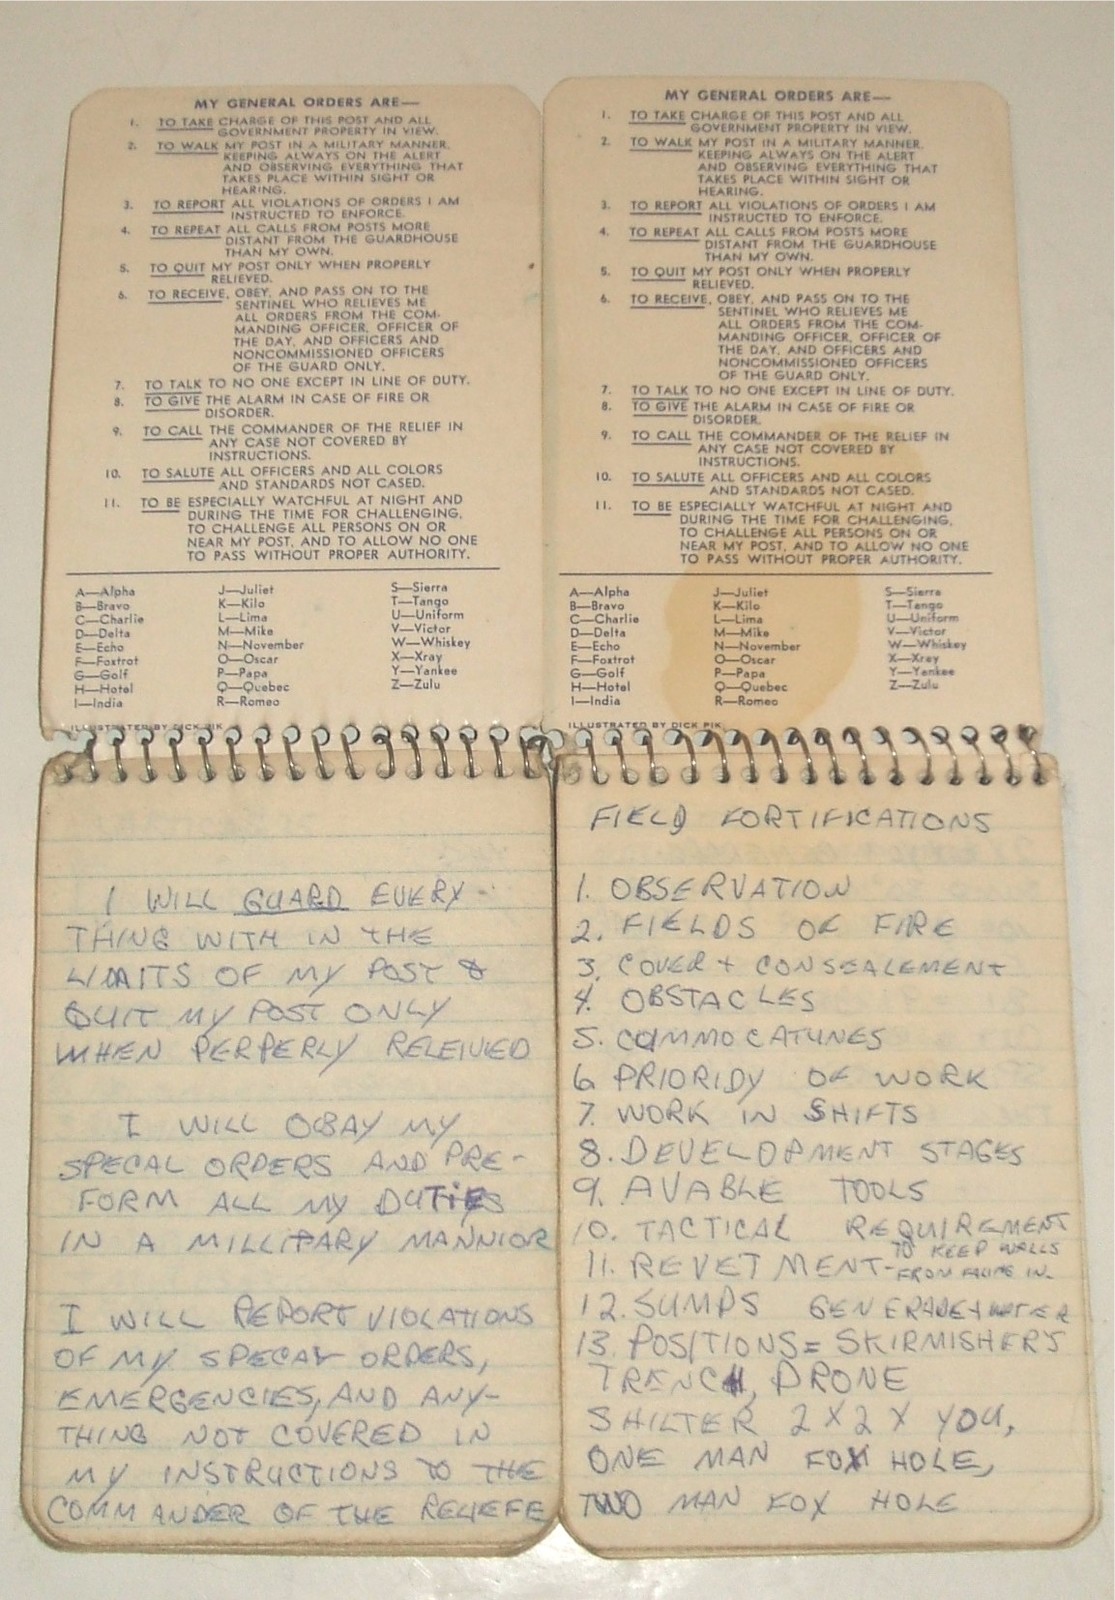 MY GENERAL ORDERS ARE—
1. TO TAKE CHARGE OF THIS POST AND ALL
GOVERNMENT PROPERTY IN VIEW.
2. TO WALK MY POST IN A MILITARY MANNER,
KEEPING ALWAYS ON THE ALERT
AND OBSERVING EVERYTHING THAT
TAKES PLACE WITHIN SIGHT OR
HEARING.
3. TO REPORT ALL VIOLATIONS OF ORDERS I AM
INSTRUCTED TO ENFORCE.
4. TO REPEAT ALL CALLS FROM POSTS MORE
DISTANT FROM THE GUARDHOUSE
THAN MY OWN.
5. TO QUIT MY POST ONLY WHEN PROPERLY
RELIEVED.
6. TO RECEIVE, OBEY, AND PASS ON TO THE
SENTINEL WHO RELIEVES ME
ALL ORDERS FROM THE COM-
MANDING OFFICER, OFFICER OF
THE DAY, AND OFFICERS AND
NONCOMMISSIONED OFFICERS
OF THE GUARD ONLY.
7. TO TALK TO NO ONE EXCEPT IN LINE OF DUTY.
8. TO GIVE THE ALARM IN CASE OF FIRE OR
DISORDER.
9. TO CALL THE COMMANDER OF THE RELIEF IN
ANY CASE NOT COVERED BY
INSTRUCTIONS.
10. TO SALUTE ALL OFFICERS AND ALL COLORS
AND STANDARDS NOT CASED.
11. TO BE ESPECIALLY WATCHFUL AT NIGHT AND
DURING THE TIME FOR CHALLENGING,
TO CHALLENGE ALL PERSONS ON OR
NEAR MY POST, AND TO ALLOW NO ONE
TO PASS WITHOUT PROPER AUTHORITY.
A—Alpha J—Juliet S—Sierra
B—Bravo K—Kilo T—Tango
C—Charlie L—Lima U—Uniform
D—Delta M—Mike V—Victor
E—Echo N—November W—Whiskey
F—Foxtrot O—Oscar X—Xray
G—Golf P—Papa Y—Yankee
H—Hotel Q—Quebec Z—Zulu
I—India R—Romeo
ILLUSTRATED BY DICK PIK
I WILL GUARD EVERY-
THING WITH IN THE
LIMITS OF MY POST &
QUIT MY POST ONLY
WHEN PERPERLY RELEIVED
I WILL OBAY MY
SPECAL ORDERS AND PRE-
FORM ALL MY DUTIES
IN A MILLITARY MANNIOR
I WILL REPORT VIOLATIONS
OF MY SPECAL ORDERS,
EMERGENCIES, AND ANY-
THING NOT COVERED IN
MY INSTRUCTIONS TO THE
COMMANDER OF THE RELIEFE
MY GENERAL ORDERS ARE—
1. TO TAKE CHARGE OF THIS POST AND ALL
GOVERNMENT PROPERTY IN VIEW.
2. TO WALK MY POST IN A MILITARY MANNER,
KEEPING ALWAYS ON THE ALERT
AND OBSERVING EVERYTHING THAT
TAKES PLACE WITHIN SIGHT OR
HEARING.
3. TO REPORT ALL VIOLATIONS OF ORDERS I AM
INSTRUCTED TO ENFORCE.
4. TO REPEAT ALL CALLS FROM POSTS MORE
DISTANT FROM THE GUARDHOUSE
THAN MY OWN.
5. TO QUIT MY POST ONLY WHEN PROPERLY
RELIEVED.
6. TO RECEIVE, OBEY, AND PASS ON TO THE
SENTINEL WHO RELIEVES ME
ALL ORDERS FROM THE COM-
MANDING OFFICER, OFFICER OF
THE DAY, AND OFFICERS AND
NONCOMMISSIONED OFFICERS
OF THE GUARD ONLY.
7. TO TALK TO NO ONE EXCEPT IN LINE OF DUTY.
8. TO GIVE THE ALARM IN CASE OF FIRE OR
DISORDER.
9. TO CALL THE COMMANDER OF THE RELIEF IN
ANY CASE NOT COVERED BY
INSTRUCTIONS.
10. TO SALUTE ALL OFFICERS AND ALL COLORS
AND STANDARDS NOT CASED.
11. TO BE ESPECIALLY WATCHFUL AT NIGHT AND
DURING THE TIME FOR CHALLENGING,
TO CHALLENGE ALL PERSONS ON OR
NEAR MY POST, AND TO ALLOW NO ONE
TO PASS WITHOUT PROPER AUTHORITY.
A—Alpha J—Juliet S—Sierra
B—Bravo K—Kilo T—Tango
C—Charlie L—Lima U—Uniform
D—Delta M—Mike V—Victor
E—Echo N—November W—Whiskey
F—Foxtrot O—Oscar X—Xray
G—Golf P—Papa Y—Yankee
H—Hotel Q—Quebec Z—Zulu
I—India R—Romeo
ILLUSTRATED BY DICK PIK
FIELD FORTIFICATIONS
1. OBSERVATION
2. FIELDS OF FIRE
3. COVER + CONSEALEMENT
4. OBSTACLES
5. COMMOCATUNES
6 PRIORIDY OF WORK
7. WORK IN SHIFTS
8. DEVELOPMENT STAGES
9. AVABLE TOOLS
10. TACTICAL REQUIREMENT
11. REVETMENT- TO KEEP WALLS
FROM IN.
12. SUMPS
13. POSITIONS = SKIRMISHERS
TRENCH, PRONE
SHILTER 2 X 2 X YOU,
ONE MAN FOX HOLE,
TWO MAN FOX HOLE